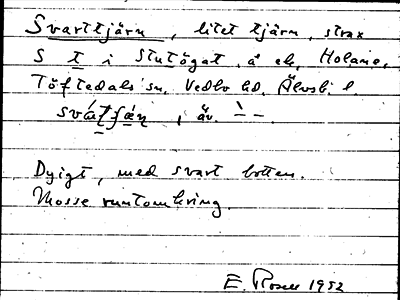 Svarttjärn, litet tjärn, strax
S t i Stutögat å ek. Holane,
Töftedals sn, Vedbo hd, Älvsb. l.
svát̠ʃǽṇ, äv. `– –.
Dyigt, med svart botten.
Mosse runtomkring.
E. Rosen 1952